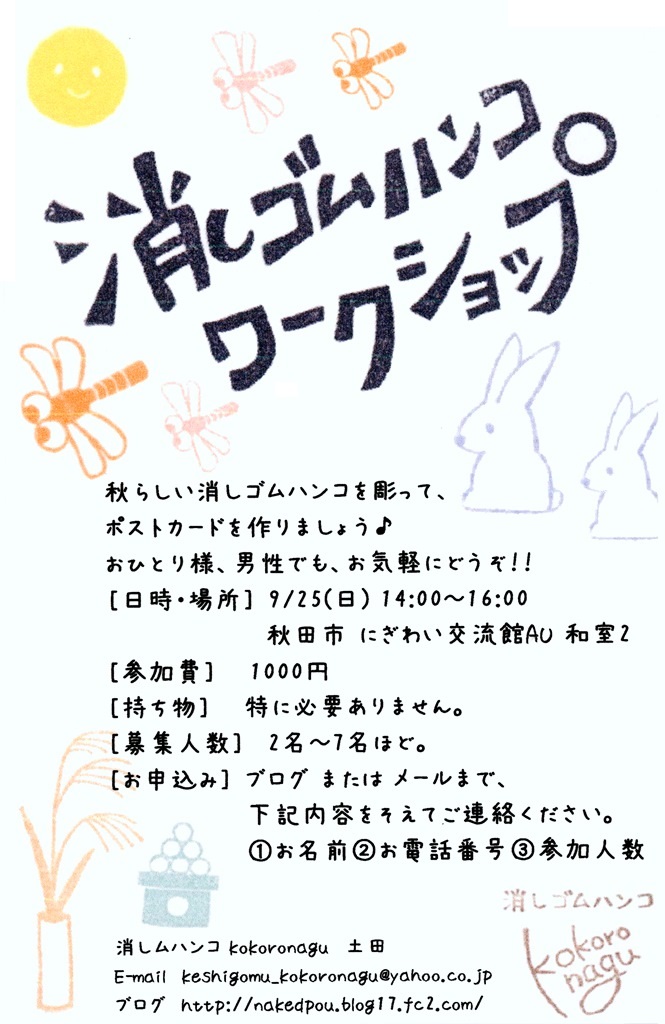 消しゴムハンコ
ワークショップ
秋らしい消しゴムハンコを彫って、
ポストカードを作りましょう♪
おひとり様、男性でも、お気軽にどうぞ!!
[日時・場所] 9/25(日) 14:00～16:00
秋田市 にぎわい交流館AU 和室2
[参加費] 1000円
[持ち物] 特に必要ありません。
[募集人数] 2名～7名ほど。
[お申込み] ブログ または メールまで、
下記内容をそえてご連絡ください。
①お名前②お電話番号③参加人数
消しゴムハンコ
kokoro
nagu
消しムハンコ kokoronagu 土田
E-mail keshigomu_kokoronagu@yahoo.co.jp
ブログ http://nakedpou.blog17.fc2.com/